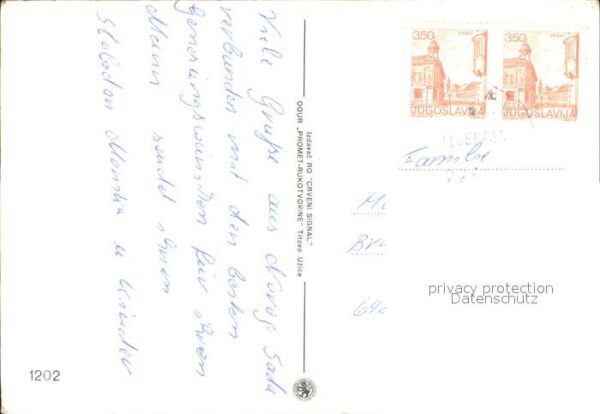 Viele Grüße aus Novog Sada
verbunden mit den besten
Genesungswünschen für Ihren
Mann sendet Ihnen
Slobodan Monika u Kinder
1202
Izdavač RO "CRVENI SIGNAL"
OOUR „PROMET-RUKOTVORINE" Titovo Užice
3.50
VRŠAC
JUGOSLAVIJA
3.50
VRŠAC
JUGOSLAVIJA
Familie
privacy protection
Datenschutz